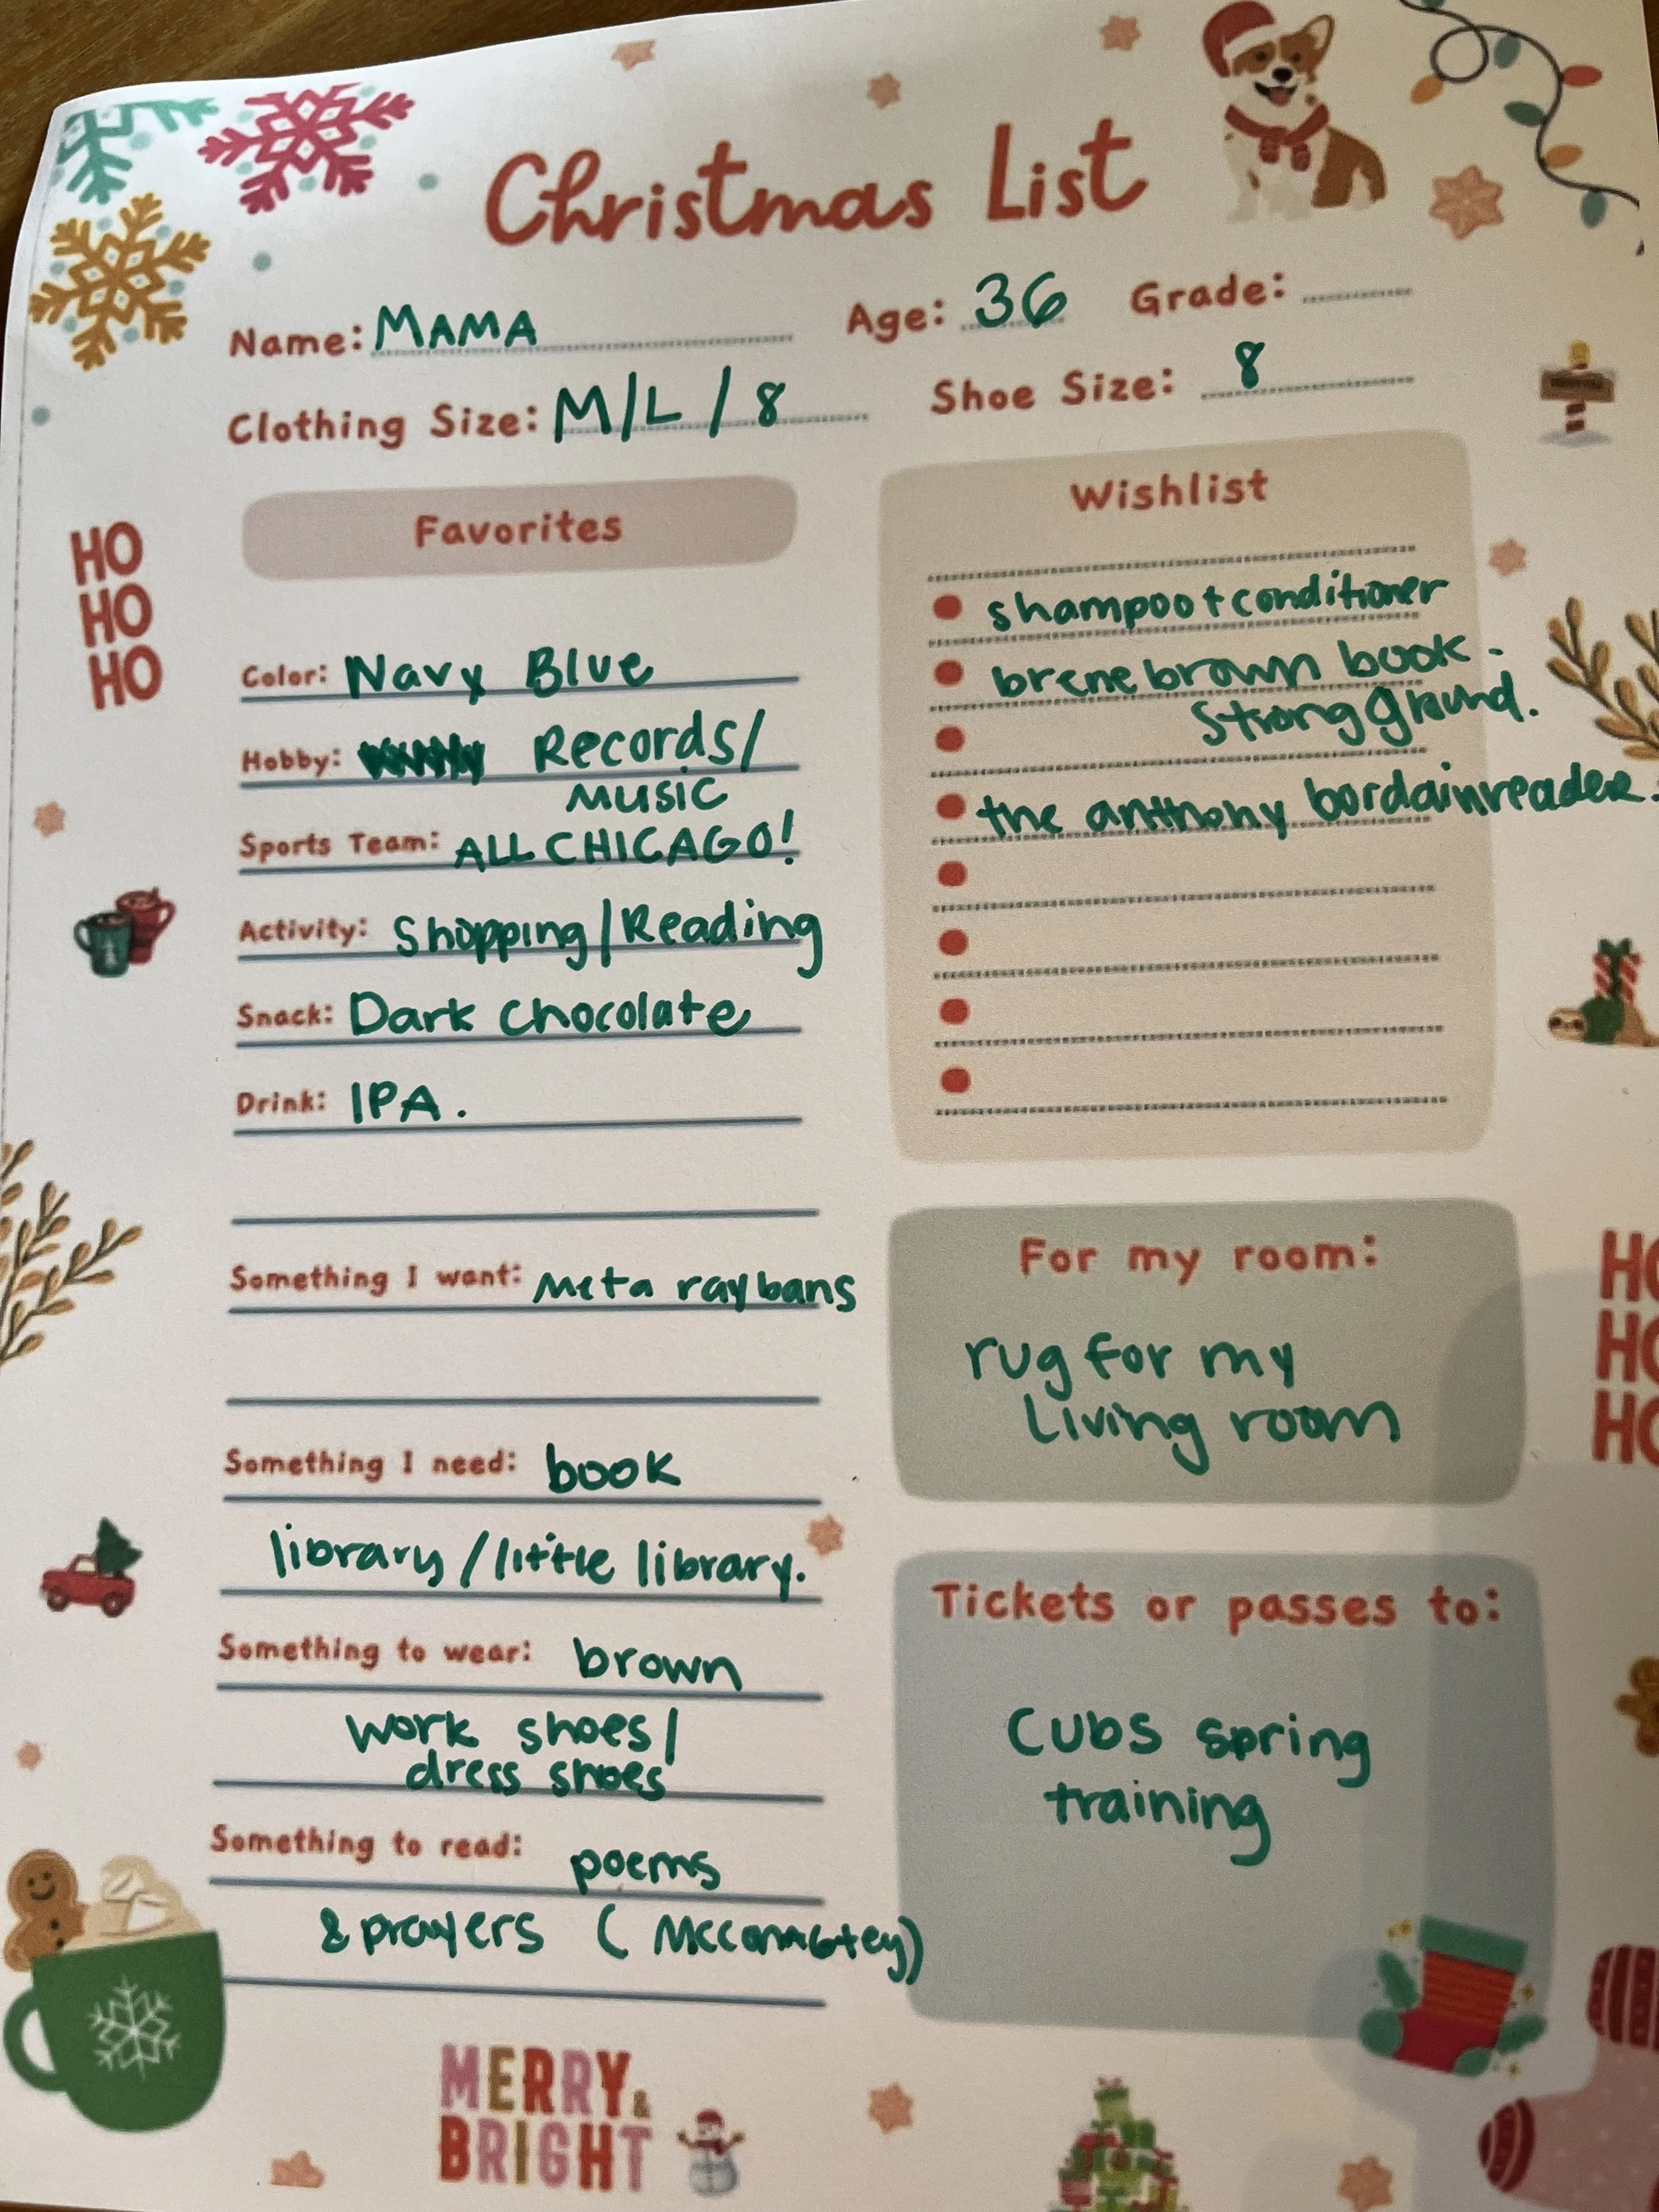 Christmas List
Name: MAMA Age: 36 Grade:
Clothing Size: M/L/8 Shoe Size: 8
Favorites
HO
HO
HO
Color: Navy Blue
Hobby: Records/
music
Sports Team: ALL CHICAGO!
Activity: Shopping/Reading
Snack: Dark Chocolate
Drink: IPA.
Something I want: meta raybans
Something I need: book
library/little library.
Something to wear: brown
work shoes/
dress shoes
Something to read: poems
& prayers (
Wishlist
shampoo + conditioner
brene brown book -
strong ground.
the anthony bordain reader.
For my room:
rug for my
Living room
HO
HO
HO
Tickets or passes to:
Cubs spring
training
MERRY &
BRIGHT